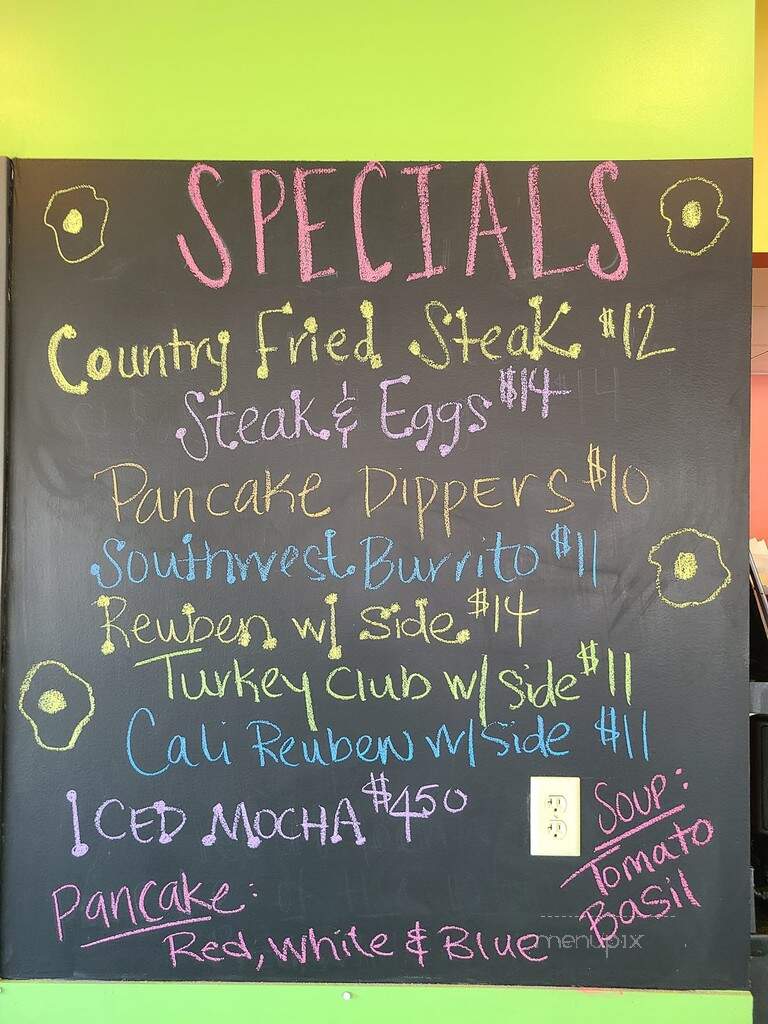 SPECIALS
Country Fried Steak $12
Steak & Eggs $14
Pancake Dippers $10
Southwest Burrito $11
Reuben w/ Side $14
Turkey Club w/ Side $11
Cali Reuben w/ Side $11
ICED MOCHA $450
Pancake:
Red, White & Blue
Soup:
Tomato
Basil
menupix